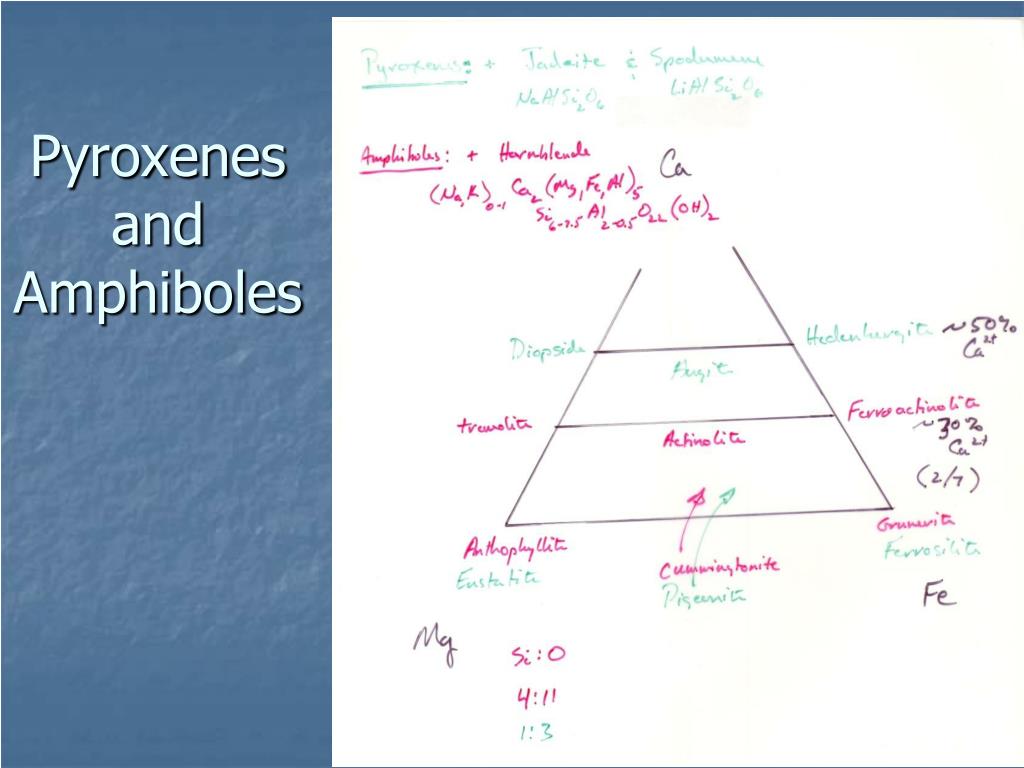 Pyroxenes
and
Amphiboles
Pyroxenes: + Jadeite & Spodumene
NaAlSi₂O₆ LiAlSi₂O₆
Amphiboles: + Hornblende
(Na,K)₀₋₁ Ca₂ (Mg,Fe,Al)₅
Si₆₋₇.₅ Al₂₋₀.₅ O₂₂ (OH)₂
Ca
Diopside
Hedenbergite ~50%
Ca²⁺
Augite
tremolite
Ferroactinolite
~30%
Ca²⁺
(2/7)
Actinolite
Anthophyllite
Enstatite
Cummingtonite
Pigeonite
Grunerite
Ferrosilite
Mg
Fe
Si:O
4:11
1:3